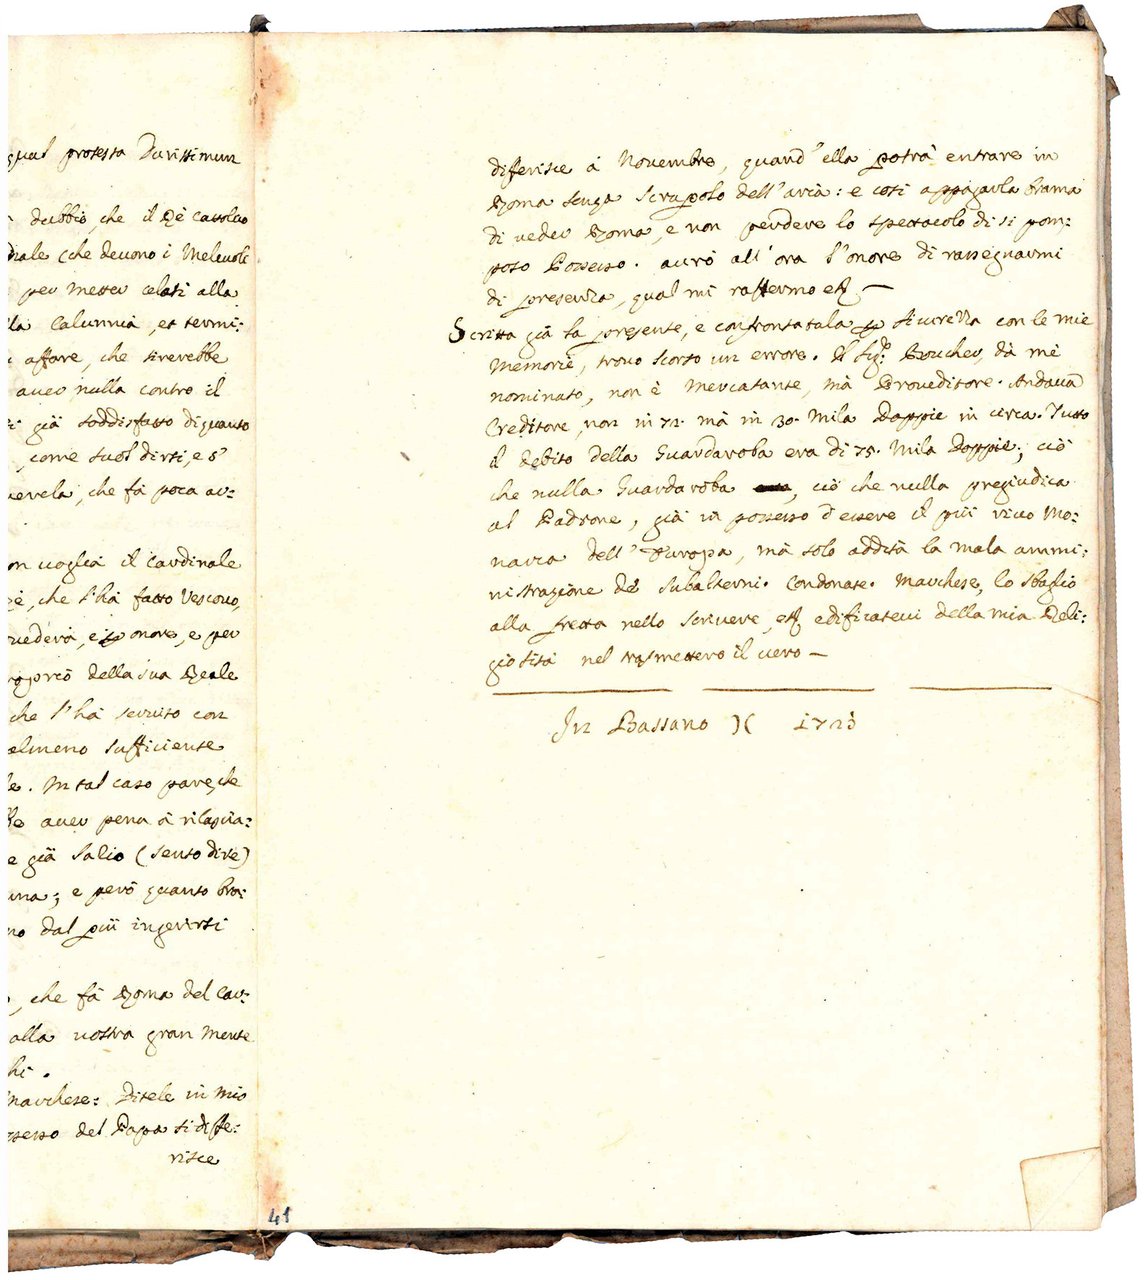 qual protesta Durissimun
dubbio, che il Rè Cattolico
diale (che devono i Malevoli
per metter celati alla
la Calunnia, et termi:
affare, che sirevebbe
aver nulla contro il
già soddisfatto di quanto
, come suol dirsi, e s'
uerela, che fà poca au:
on voglia il Cardinale
che l'hà fatto Vescovo,
vederà, e p onore, e per
proprio della sua Reale
che l'hà servito con
almeno sufficiente
. In tal caso pare, che
aver pena à rilascia:
e già Salio (sento dire)
una; e però quanto bra:
no dal più ingerirsi
, che fà Roma del Car:
alla vostra gran Mente
hi.
Marchese: Ditele in mio
ssesso del Papa si diffe:
risce
diferisce à Novembre, quand'ella potrà entrare in
Roma senza scrupolo dell'aria: e così appagarla brama
di veder Roma, e non perdere lo spettacolo di sì pom:
poso Possesso. avrò all'ora l'onore di rassegnarmi
di presenza, qual mi raffermo etc —
Scritta già la presente, e confrontatala p sicurezza con le mie
Memorie, trovo scorso un errore. Il Sigr. Boucher, dà mè
nominato, non è Mercatante, mà Proveditore. Andava
Creditore, non in 72. mà in 30. Mila Doppie in circa. Tutto
il debito della Guardaroba era di 75. Mila Doppie; ciò
che nulla Guardaroba, ciò che nulla pregiudica
al Padrone, già in possesso d'essere il più ricco Mo:
narca dell'Europa, mà solo addità la mala ammi:
nistrazione de Subalterni. Condonate. Marchese, lo sbaglio
alla fretta nello scrivere, etc edificatevi della mia Reli:
giosità nel trasmettere il vero —
In Bassano )( 1723
41